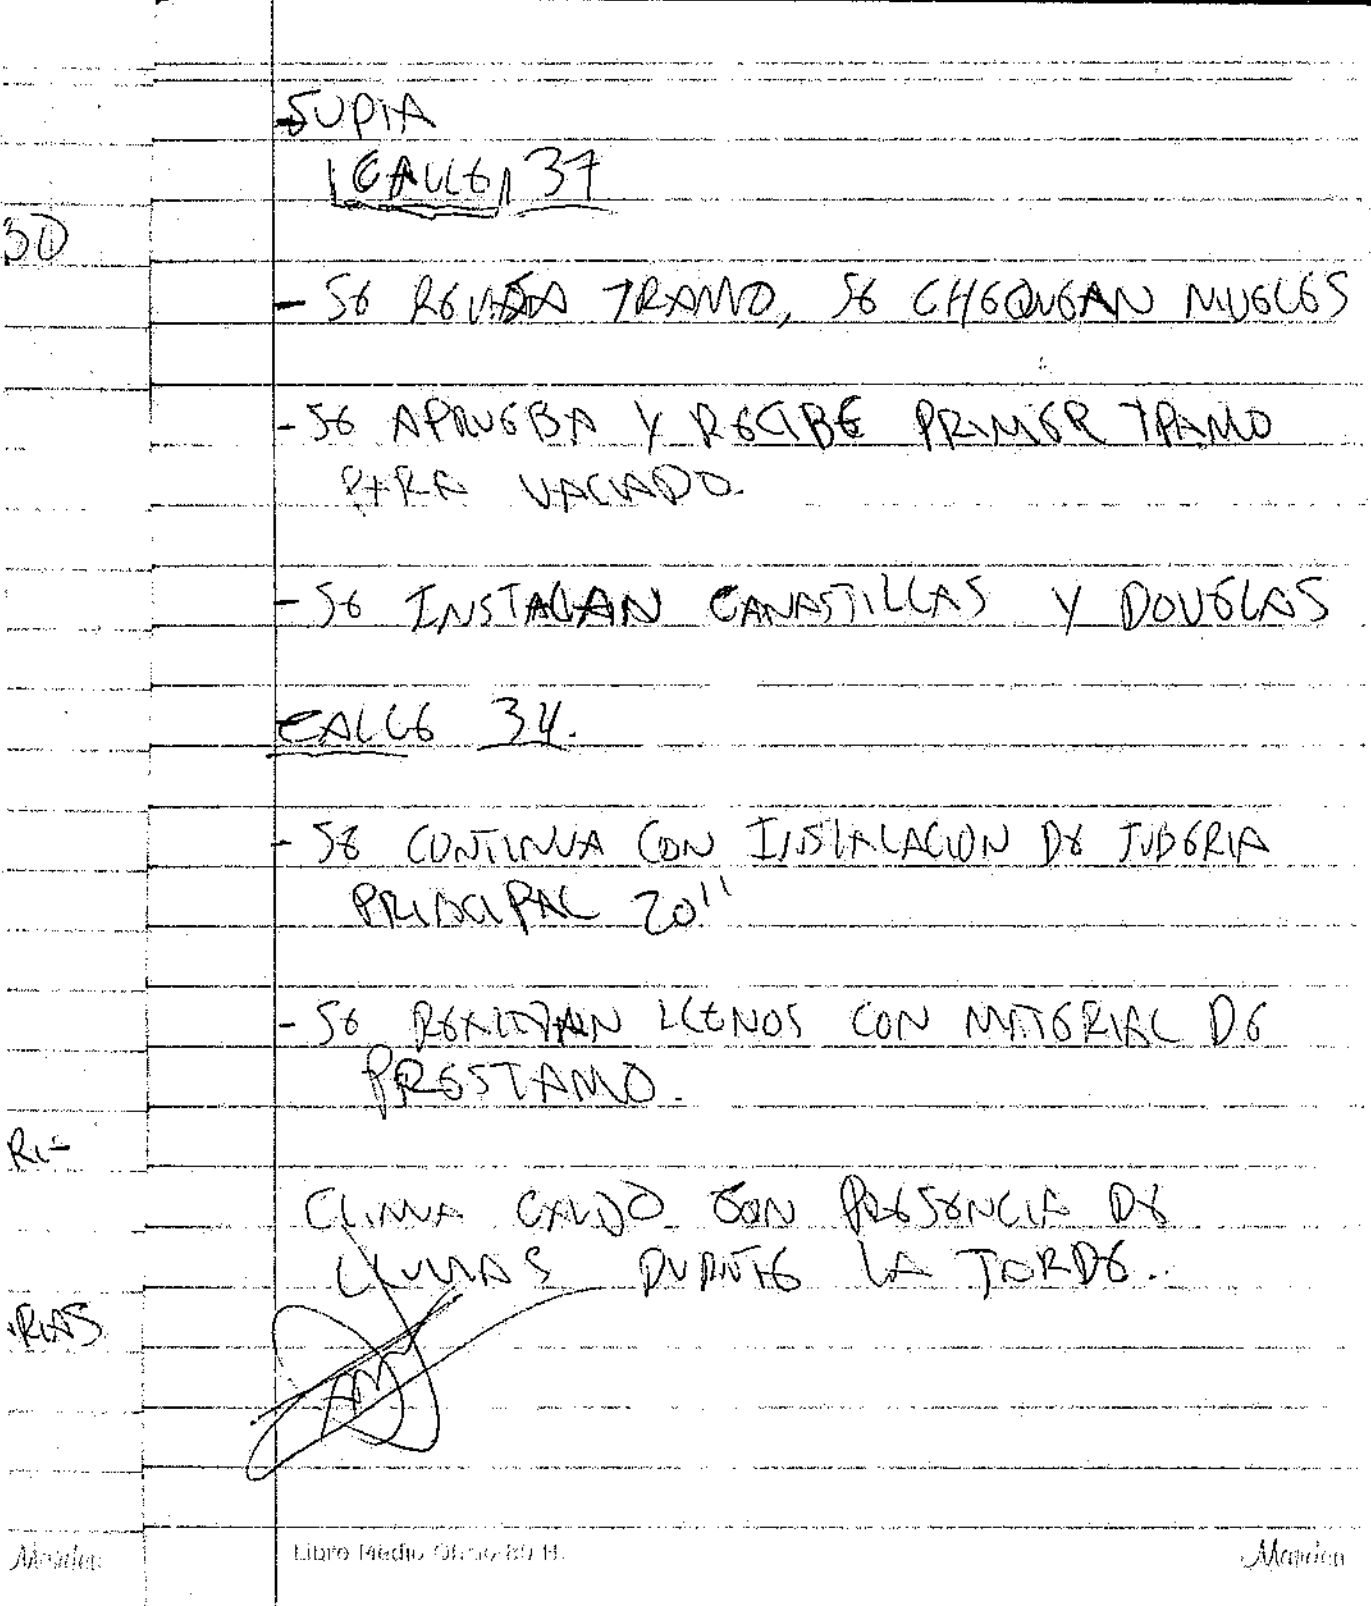 - SUPIA
CALLE 37
3D
- SE REVISA TRAMO, SE CHEQUEAN NIVELES
- SE APRUEBA Y RECIBE PRIMER TRAMO
PARA VACIADO.
- SE INSTALAN CANASTILLAS Y DOVELAS
CALLE 34.
- SE CONTINUA CON INSTALACION DE TUBERIA
PRINCIPAL 20"
- SE REALIZAN LLENOS CON MATERIAL DE
PRESTAMO.
RI-
CLIMA CALIDO CON PRESENCIA DE
LLUVIAS DURNTE LA TARDE.
RIAS
AM
Libro Medio Oficio 80 H.